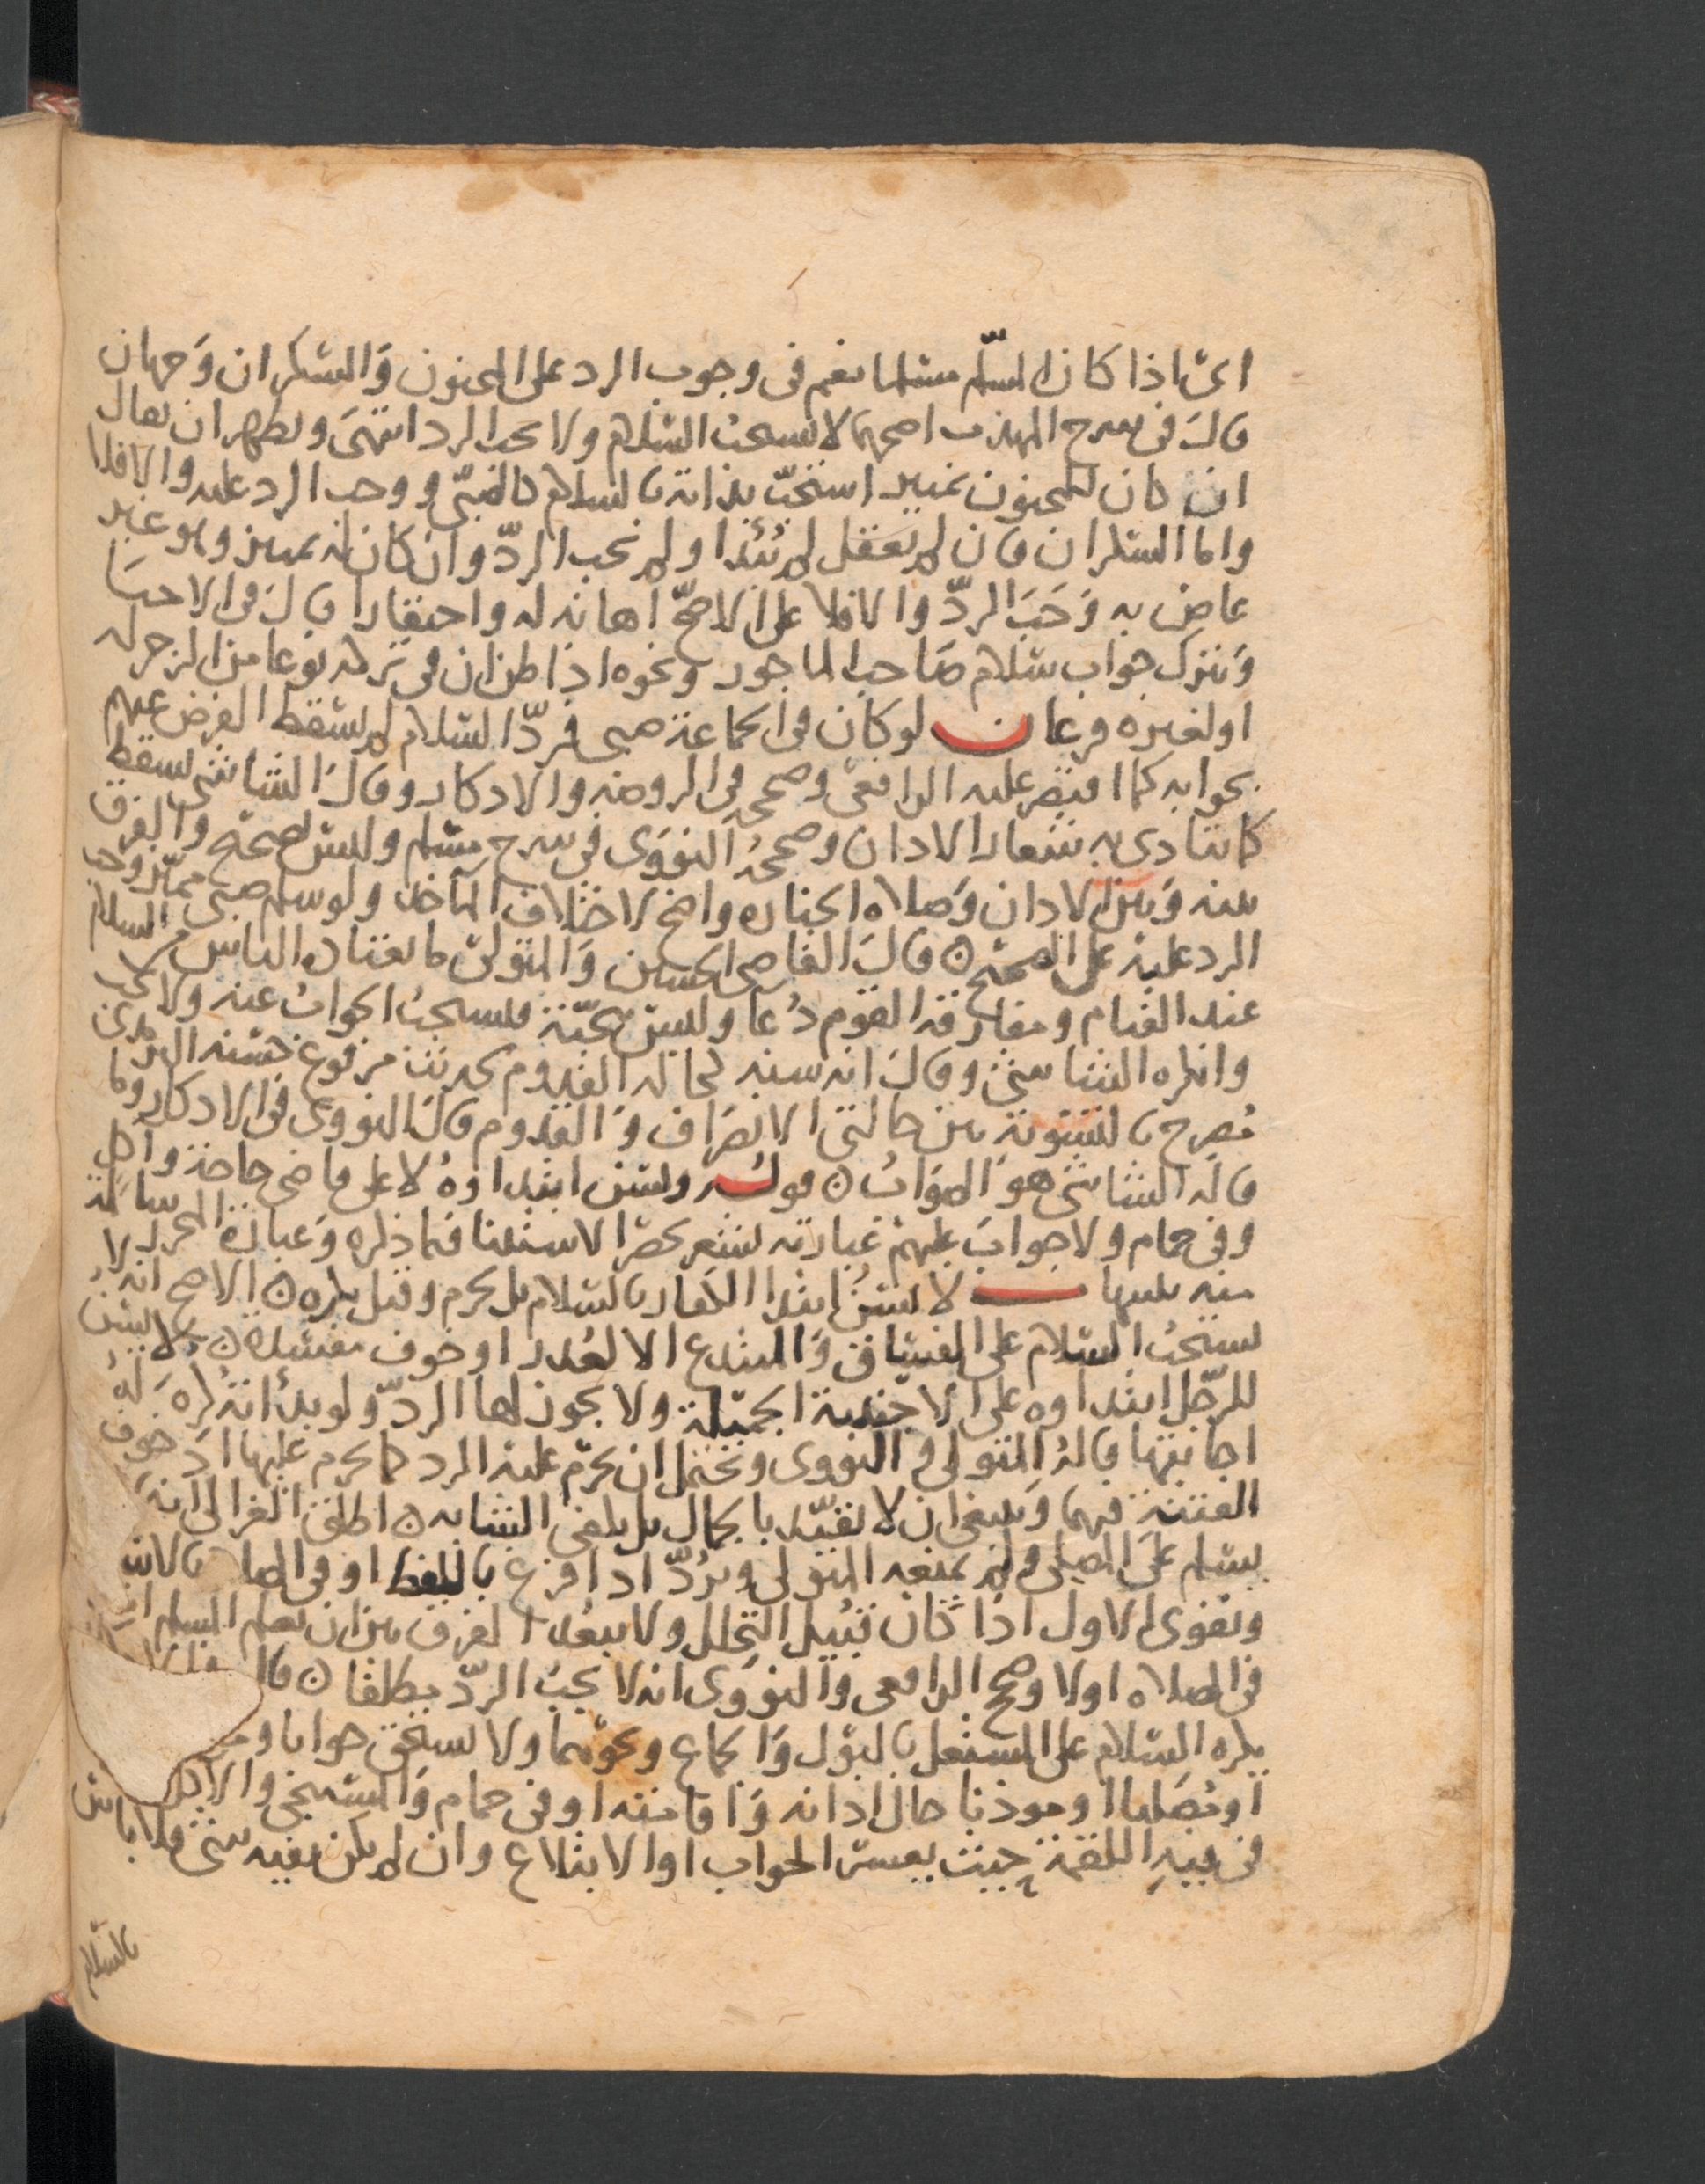 اى اذا كان المسلم مسلما نعم فى وجوب الرد على المجنون والسكران وجهان
قال فى شرح المهذب اصحهما لا يستحب السلام ولا يجب الرد انتهى ويظهر ان يقال
ان كان للمجنون تمييز استحب بداته بالسلام كالصبى ووجب الرد عليه والا فلا
واما السكران فان لم يعقل لم يُبْتَدأ ولم يجب الردّ وان كان له تمييز وهو غير
عاص به وَجَبَ الردّ والا فلا على الاصحّ اهانه له واحتقارا قال فى الاحيا
ويترك جواب سلام صاحب الماجور ونحوه اذا ظن ان فى تركه نوعا من الزجر له
او لغيره فرعان لو كان فى الجماعة صبى فردّ السلام لم يسقط الفرض عنهم
بجوابه كما اقتصر عليه الرافعى وصححه فى الروضه والاذكار وقال الشاشى يسقط
كما يتادى به شعار الاذان وصححهُ النووى فى شرح مسلم وليس بصحيح والفرق
بينه وبين الاذان وصلاه الجنازه واضح لاختلاف المآخذ ولو سلم صبى مميّز وجب
الرد عليه على الصحيح ه قال القاضى الحسين والمتولى ما يعتاده الناس من السلام
عند القيام ومفارقة القوم دُعا وليس بتحيّة فيستحبُ الجوابُ عنه ولا يجب
وانكره الشاشى وقال انه سنه كحاله القدوم لحديث مرفوع حسّنه الترمذى
مُصرح بالتسوية بين حالتى الانصراف والقدوم قال النووى فى الاذكار وما
قاله الشاشى هو الصوابُ ه قولـه ويسن ابتداوهُ لا على قاضى حاجة وآكل
وفى حمام ولا جوابَ عليهم عبارته تشعر بحصر الاستثنا فيما ذكره وعبارة المحرر سالمة
منه لا يسنُ ابتدا الكفار بالسلام بل يحرم وقيل يكره ه الاصح انه لا
يستحبُ السلام على الفساق والمبتدع الا لعُذر او خوف مفسدة ه ولا يسن
للرّجل ابتداوه على الاجنبية الجميلة ولا يجوز لها الردّ ولو بدأته كُره لهُ
اجابتها قالهُ المتولى والنووى ويحتمل ان يحرم عليه الرد كما يحرم عليها اذ خوف
الفتنة فيهما وينبغى ان لا تقيّد بالجمال بل يكفى الشابه ه اطلق الغزالى انه
يسلم على المصلى ولم يمنعه المتولى ويرُدّ اذا فرغ باللفظ او فى الصلا بالاش
ويقوى الاول اذا كان قبيل التحلل ولا يبعُد الفرق بين ان يعلم المسلم
فى الصلاه او لا وصحح الرافعى والنووى انه لا يجبُ الردّ مطلقا ه
يكره السلام على المشتغل بالبول والجماع ونحوهما ولا يستحق جوابا
او مُصليا او موذنا حال اذانه واقامته او فى حمام
فى فيهِ اللقمة حيث يعسر الجواب او الابتلاع وان لم يكن بفيه شى فلا باس
بالسلام